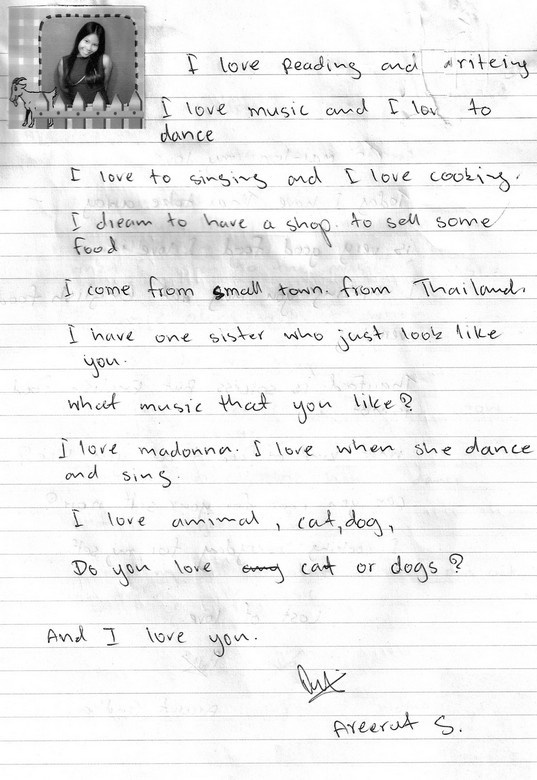 I love reading and writeing
I love music and I lov to
dance
I love to singing and I love cooking.
I dream to have a shop. to sell some
food.
I come from small town. from Thailand.
I have one sister who just look like
you.
what music that you like?
I love madonna. I love when she dance
and sing.
I love amimal, cat, dog,
Do you love cat or dogs?
And I love you.
Areerut S.